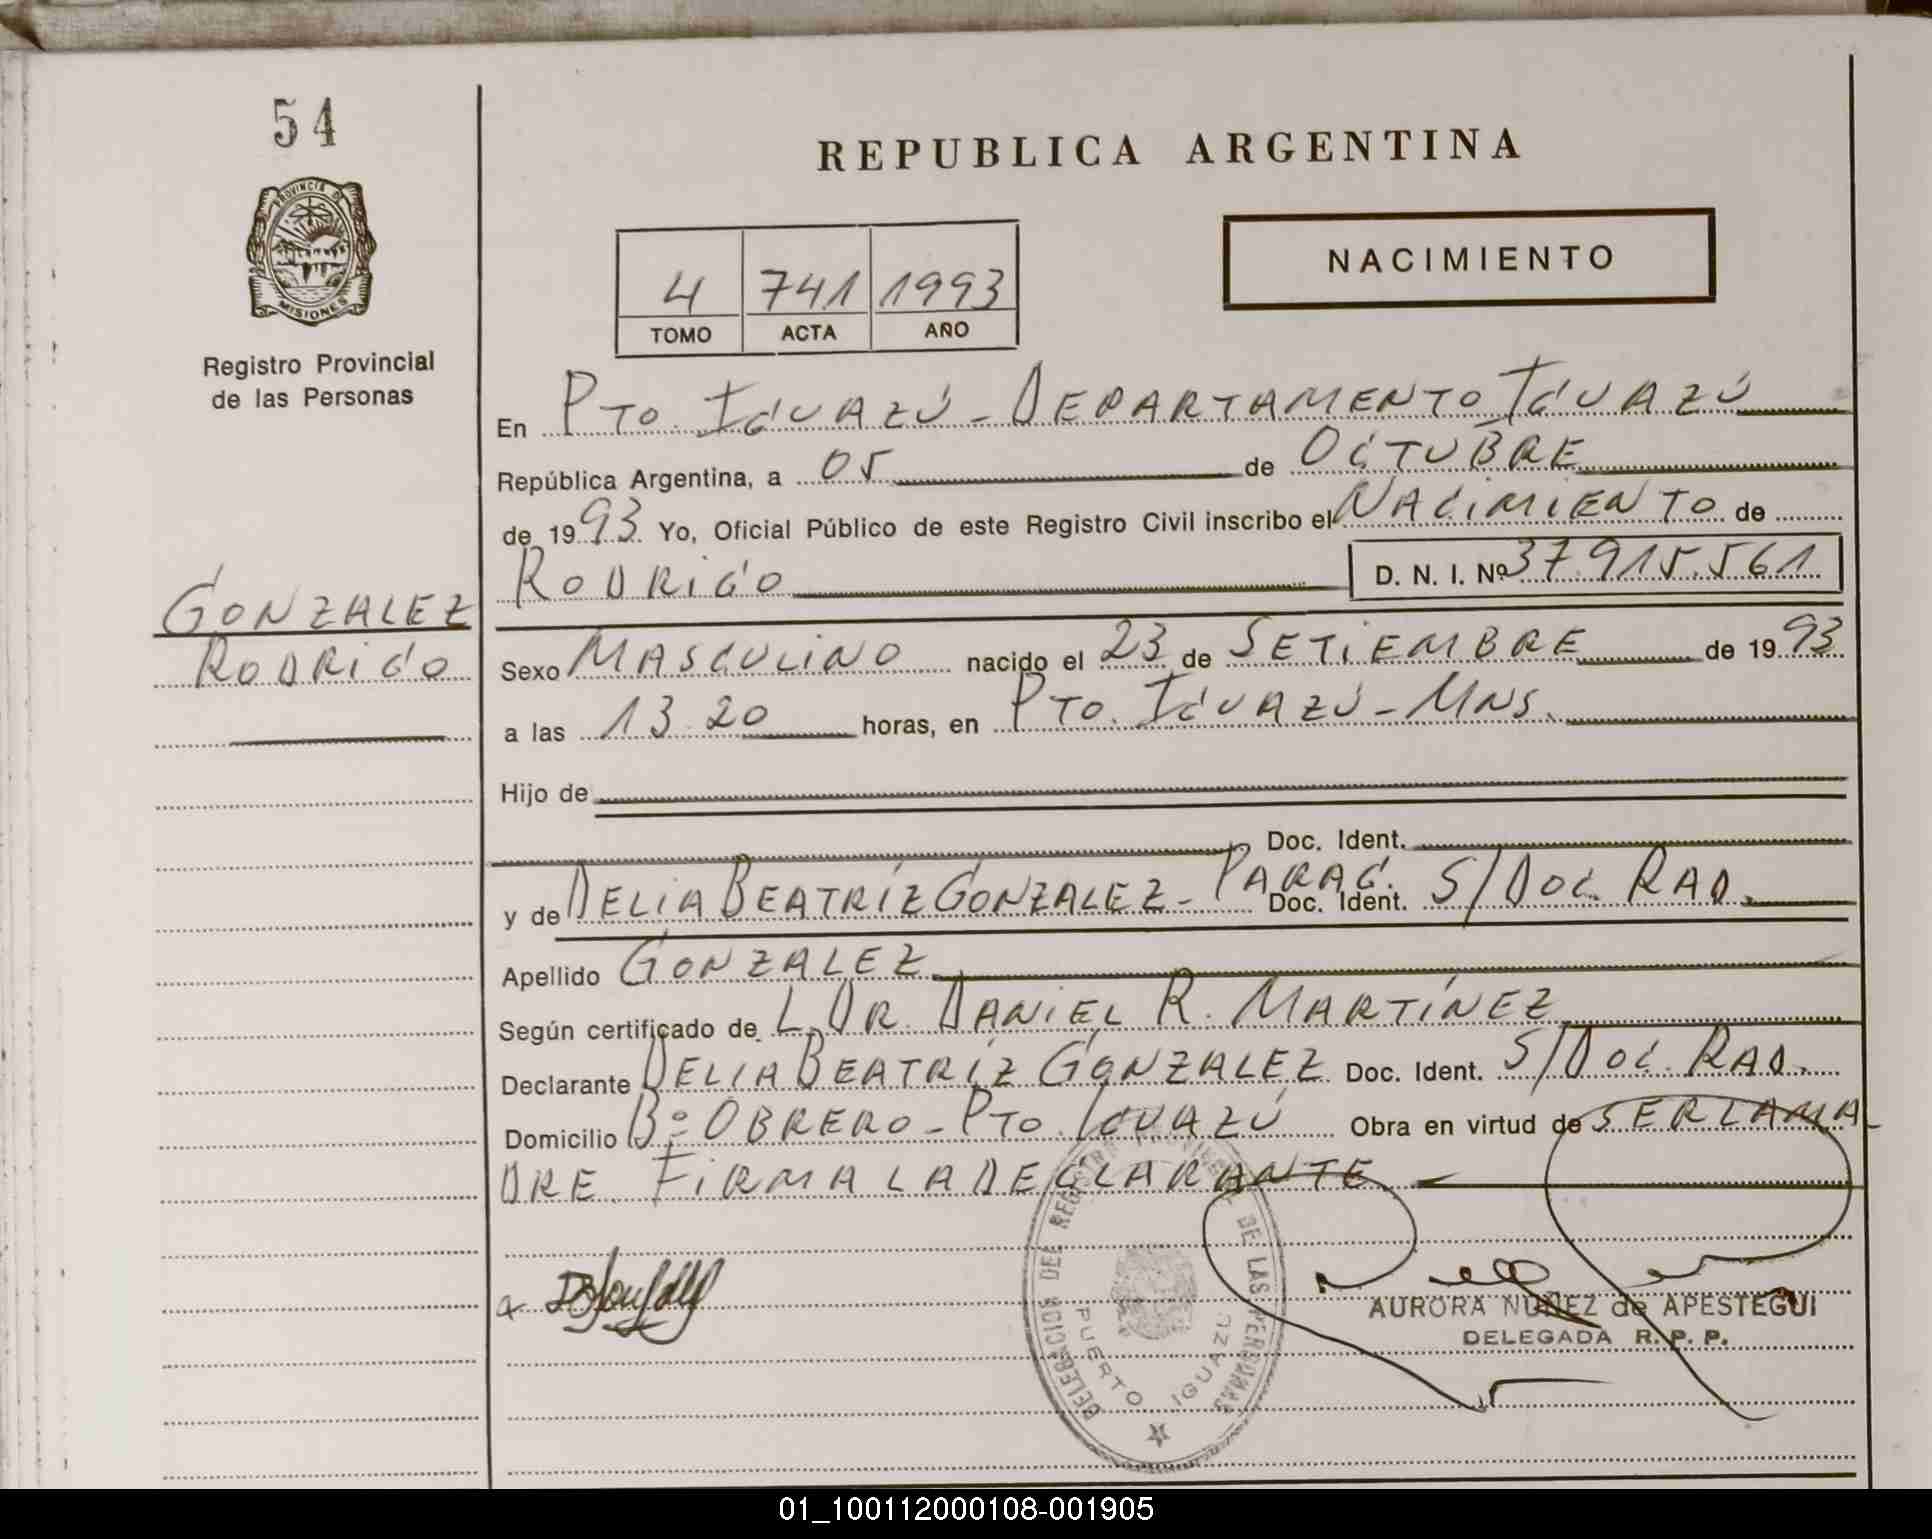 54
PROVINCIA DE
MISIONES
Registro Provincial
de las Personas
GONZALEZ
RODRIGO
REPUBLICA ARGENTINA
NACIMIENTO
4 741 1993
TOMO ACTA AÑO
En PTO. IGUAZÚ - DEPARTAMENTO IGUAZÚ
República Argentina, a 05 de OCTUBRE
de 1993 Yo, Oficial Público de este Registro Civil inscribo el NACIMIENTO de
RODRIGO D. N. I. Nº 37.915.561
Sexo MASCULINO nacido el 23 de SETIEMBRE de 1993
a las 13 20 horas, en PTO. IGUAZÚ - MNS.
Hijo de
Doc. Ident.
y de DELIA BEATRÍZ GONZALEZ - PARAG. Doc. Ident. S/DOC. RAD.
Apellido GONZALEZ
Según certificado de L. DR. DANIEL R. MARTÍNEZ
Declarante DELIA BEATRÍZ GONZALEZ Doc. Ident. S/DOC. RAD.
Domicilio Bº OBRERO - PTO. IGUAZÚ Obra en virtud de SER LA MA
DRE. FIRMA LA DECLARANTE
DELEGACION DEL REGISTRO DE LAS PERSONAS
PUERTO IGUAZU
AURORA NUÑEZ de APESTEGUI
DELEGADA R. P. P.
01_100112000108-001905